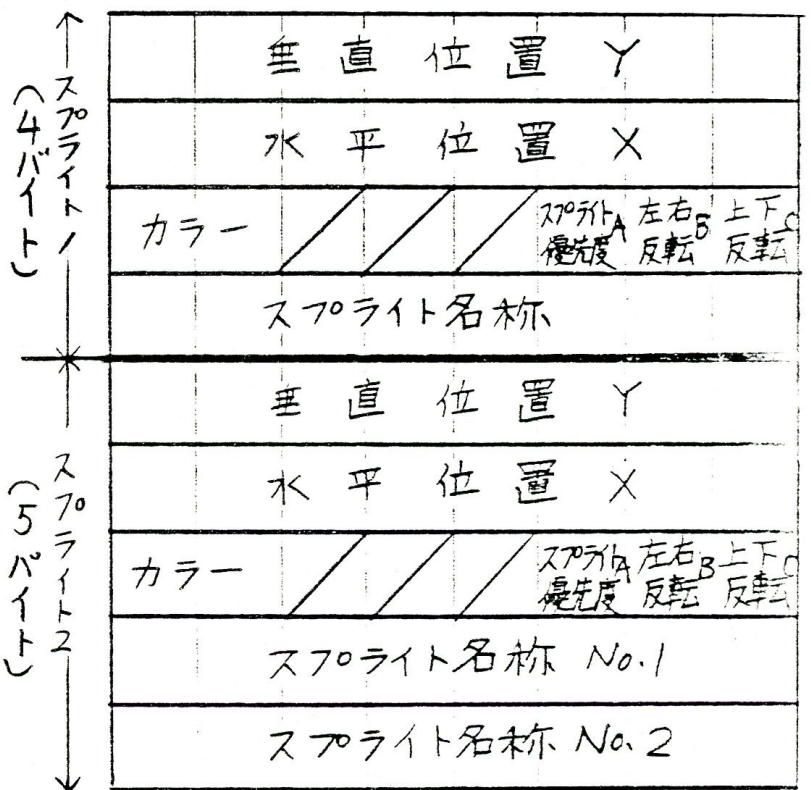 スプライト1
（4バイト）
垂直位置 Y
水平位置 X
カラー
スプライト優先度 A
左右反転 B
上下反転 C
スプライト名称
スプライト2
（5バイト）
垂直位置 Y
水平位置 X
カラー
スプライト優先度 A
左右反転 B
上下反転 C
スプライト名称 No.1
スプライト名称 No.2